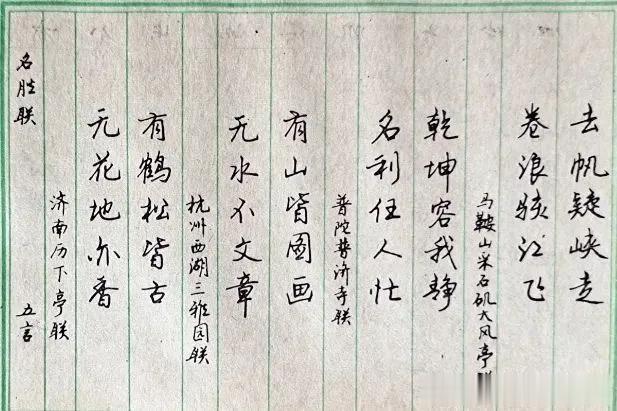 去帆疑峡走
卷浪骇江飞
马鞍山采石矶大风亭联
乾坤容我静
名利任人忙
普陀普济寺联
有山皆图画
无水不文章
杭州西湖三雅园联
有鹤松皆古
无花地亦香
济南历下亭联
名胜联 五言